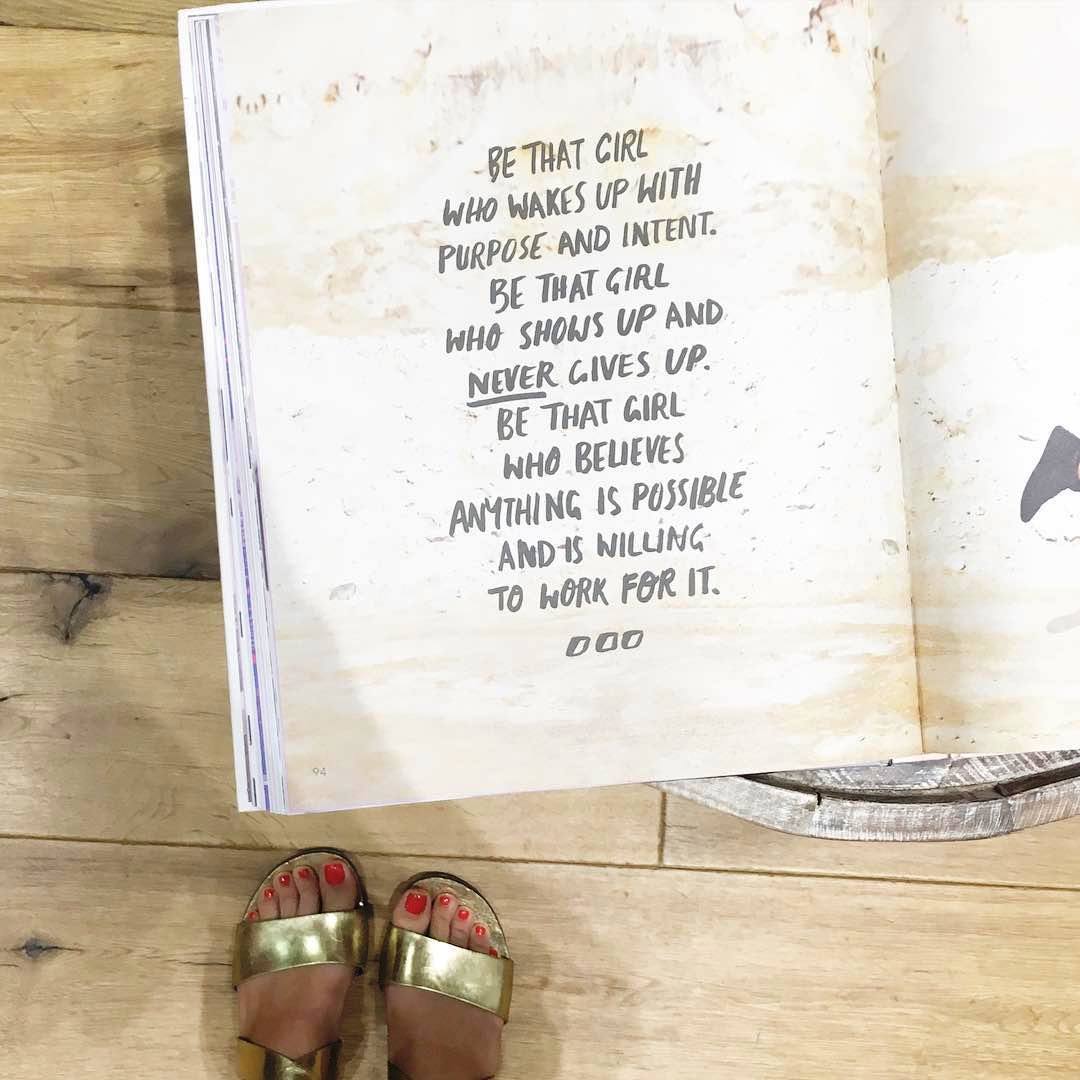 BE THAT GIRL
WHO WAKES UP WITH
PURPOSE AND INTENT.
BE THAT GIRL
WHO SHOWS UP AND
NEVER GIVES UP.
BE THAT GIRL
WHO BELIEVES
ANYTHING IS POSSIBLE
AND IS WILLING
TO WORK FOR IT.
94